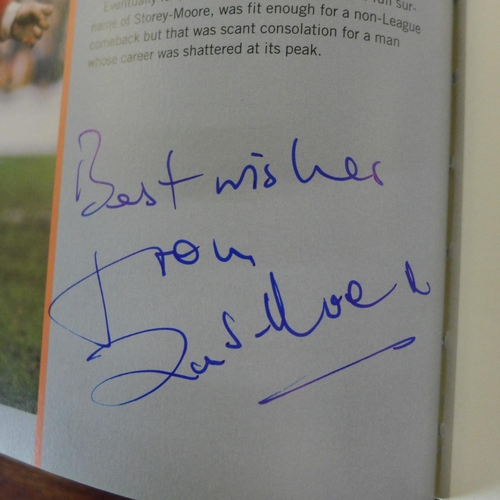 Eventually sur-
name of Storey-Moore, was fit enough for a non-League
comeback but that was scant consolation for a man
whose career was shattered at its peak.
Best wishes
from
Ian S. Moore